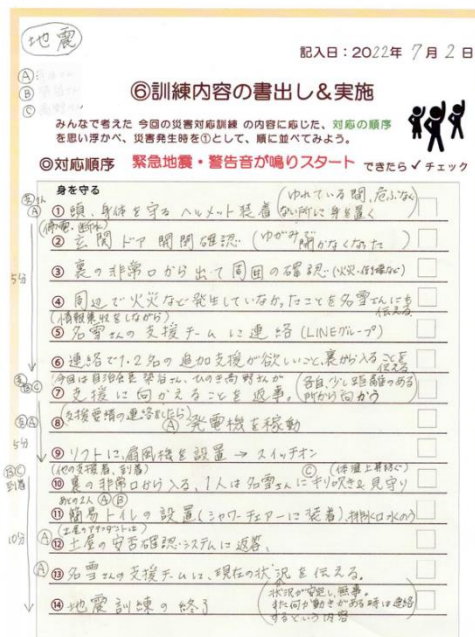 地震
記入日：2022年 7月 2日
Ⓐ
Ⓑ
Ⓒ
⑥訓練内容の書出し&実施
みんなで考えた 今回の災害対応訓練 の内容に応じた、対応の順序
を思い浮かべ、災害発生時を①として、順に並べてみよう。
◎対応順序 緊急地震・警告音が鳴りスタート できたら✓チェック
身を守る
(ゆれている間、危ぶなく
① 頭、身体を守る ヘルメット装着 ない所に身を置く)
(停電・断水)
② 玄関ドア開閉確認 (ゆがみで開かなくなった)
③ 裏の非常口から出て周囲の確認 (火災、など)
5分
④ 周辺で火災など発生していなかったことを名雪さんにも
伝える
(情報収集をしながら)
⑤ 名雪さんの支援チームに連絡 (LINEグループ)
⑥ 連絡で1・2名の追加支援が欲しいこと、裏から入ることを
伝える
今回は自治会長 さん、ひのき 野さんが
⑦ 支援に向かえることを返事。(各自、少し距離のある
所から向かう
(支援要請の連絡をしたら)
⑧ Ⓐ 発電機を稼動
5分
⑨ リフトに、扇風機を設置 → スイッチオン
(他の支援者、到着) Ⓒ (体温上昇防ぐ)
⑩ 裏の非常口から入る、1人は名雪さんに 霧吹き 見守り
到着
あとの2人 Ⓐ Ⓑ
⑪ 簡易トイレの設置 (シャワーチェアーに装着)、排水口 水のう
10分
(土屋のアテンダントは)
Ⓐ
⑫ 土屋の安否確認システムに返答、
Ⓐ
⑬ 名雪さんの支援チームに、現在の状況を伝える。
⑭ 地震訓練の終了 (状況が安定し、無事。
また何か動きがある時は連絡
するという内容)